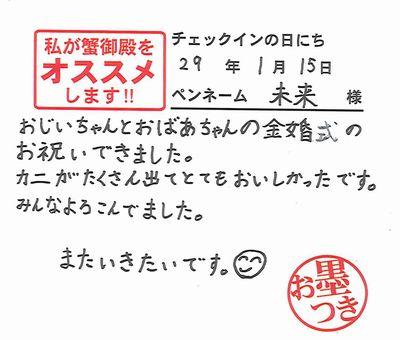 私が蟹御殿を
オススメ
します!!
チェックインの日にち
29 年 1月 15日
ペンネーム 未来 様
おじいちゃんとおばあちゃんの金婚式の
お祝いできました。
カニがたくさん出てとてもおいしかったです。
みんなよろこんでました。
またいきたいです。
お墨つき